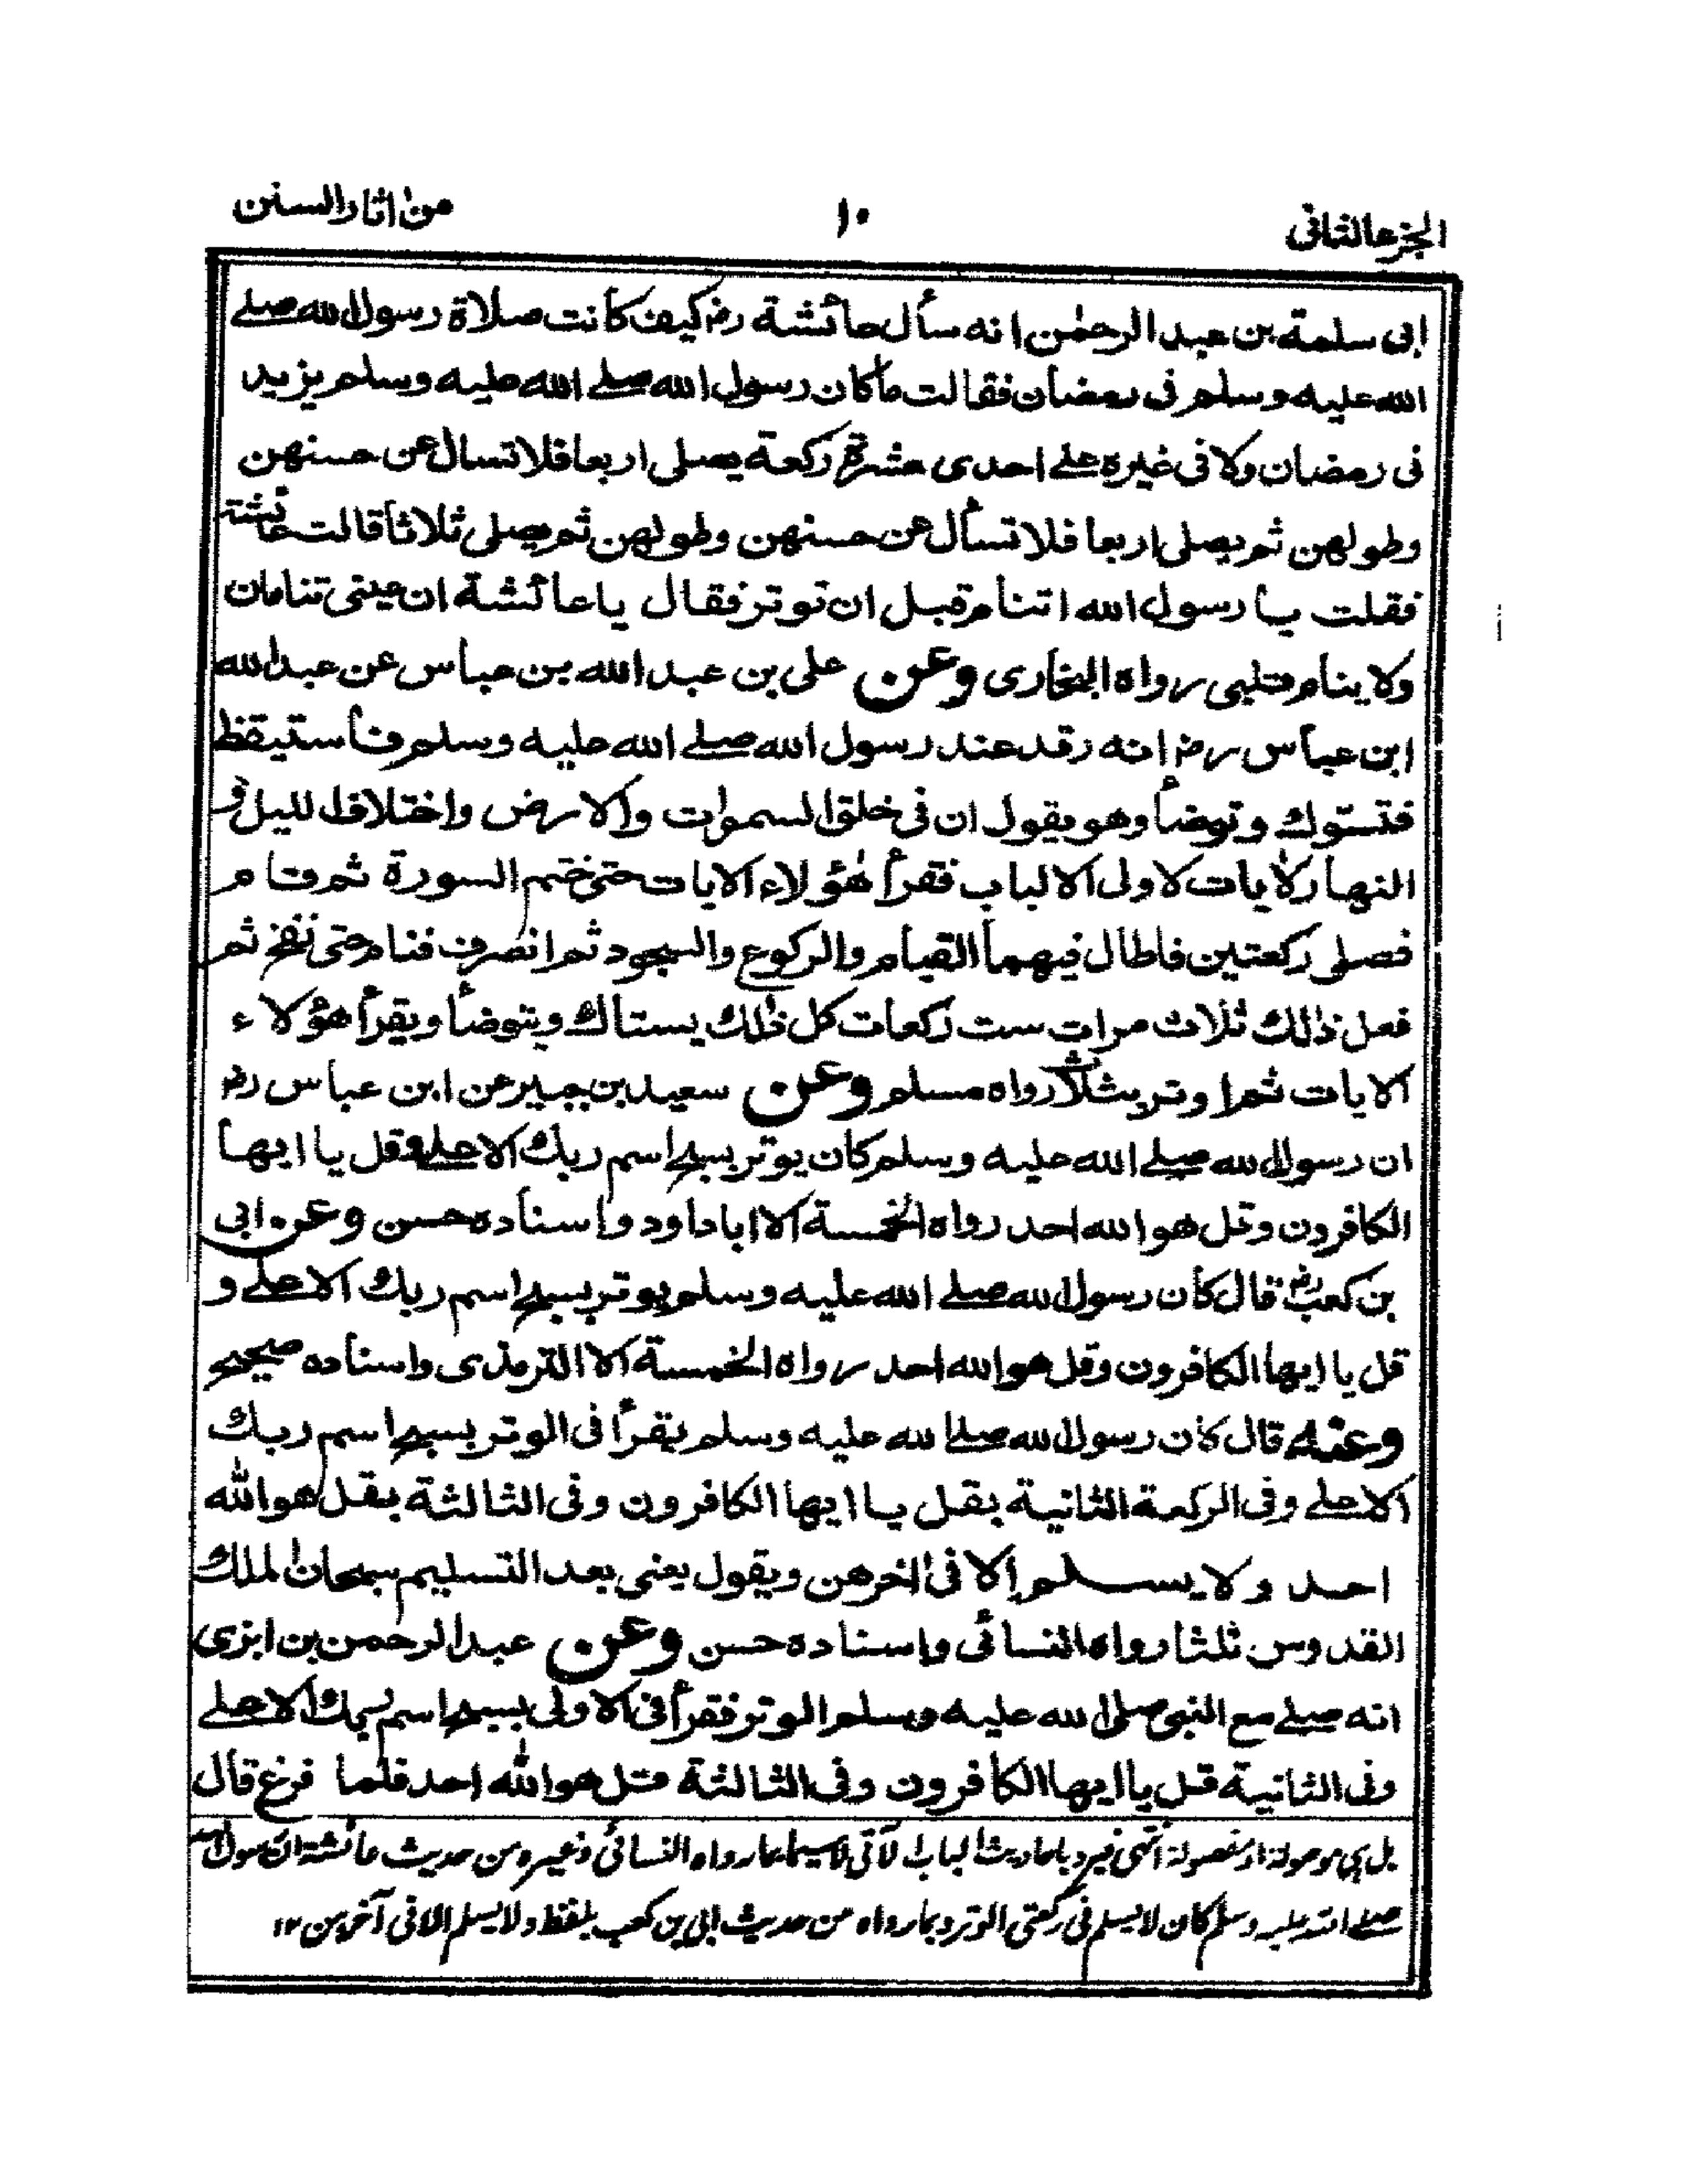 الجزء الثانى
١٠
من اثار السنن
ابى سلمة بن عبد الرحمٰن انه سأل عائشة رضـ كيف كانت صلاة رسول الله صلے
الله عليه وسلم فى رمضان فقالت ما كان رسول الله صلے الله عليه وسلم يزيد
فى رمضان ولا فى غيره علے احدى عشرة ركعة يصلى اربعا فلا تسال عن حسنهن
وطولهن ثم يصلى اربعا فلا تسأل عن حسنهن وطولهن ثم يصلى ثلاثا قالت عائشة
فقلت يا رسول الله اتنام قبل ان توتر فقال يا عائشة ان عينى تنامان
ولا ينام قلبى رواه البخارى وعن على بن عبد الله بن عباس عن عبد الله
ابن عباس رضـ انه رقد عند رسول الله صلے الله عليه وسلم فأستيقظ
فتستوك وتوضأ وهو يقول ان فى خلق السمٰوات والارض واختلاف الليل و
النهار لاٰيات لاولى الالباب فقرأ هٰؤلاء الايات حتى ختم السورة ثم قام
فصلى ركعتين فاطال فيهما القيام والركوع والسجود ثم انصرف فنام حتى نفخ ثم
فعل ذٰلك ثلاث مرات ست ركعات كل ذٰلك يستاك ويتوضأ ويقرأ هؤلاء
الايات ثم اوتر بثلاث رواه مسلم وعن سعيد بن جبير عن ابن عباس رضـ
ان رسول الله صلے الله عليه وسلم كان يوتر بسبح اسم ربك الاعلے وقل يا ايها
الكافرون وقل هو الله احد رواه الخمسة الا ابا داود وإسناده حسن وعن ابى
بن كعب رضـ قال كان رسول الله صلے الله عليه وسلم يوتر بسبح اسم ربك الاعلے و
قل يا ايها الكافرون وقل هو الله احد رواه الخمسة الا الترمذى واسناده صحيح
وعنه قال كان رسول الله صلے الله عليه وسلم يقرأ فى الوتر بسبح اسم ربك
الاعلے وفى الركعة الثانية بقل يا ايها الكافرون وفى الثالثة بقل هو الله
احد ولا يسلم إلا فى اٰخرهن ويقول يعنى بعد التسليم سبحان الملك
القدوس ثلثا رواه النسائى وإسناده حسن وعن عبد الرحمن بن ابزى
انه صلے مع النبى صلى الله عليه وسلم الوتر فقرأ فى الاولى بسبح اسم ربك الاعلے
وفى الثانية قل يا ايها الكافرون وفى الثالثة قل هو الله احد فلما فرغ قال
بل ہى موصولة او مفصولة انتہى فيرد باحاديث الباب الآتى لا سيما بما رواه النسائى وغيره من حديث عائشة ان رسول الله
صلے اللہ عليه وسلم كان لا يسلم فى ركعتى الوتر وبما رواه من حديث ابى بن كعب بلفظ ولا يسلم الا فى آخرہن ١٢